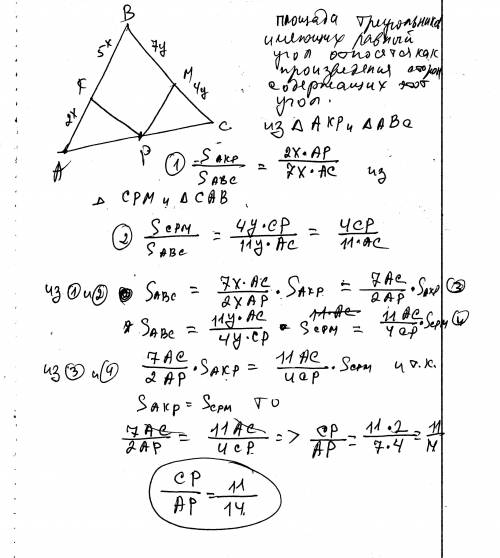 B
5x
7y
K
M
4y
2x
A
P
C
площади треугольника
имеющих равный
угол относятся как
произведения сторон
содержащих этот
угол.
из △ AKP и △ ABC
① S_AKP / S_ABC = 2x·AP / 7x·AC из
△ CPM и △ CAB
② S_CPM / S_ABC = 4y·CP / 11y·AC = 4CP / 11·AC
из ① и ② S_ABC = 7x·AC / 2xAP · S_AKP = 7AC / 2AP · S_AKP ③
S_ABC = 11y·AC / 4y·CP · S_CPM = 11AC / 4CP · S_CPM ④
из ③ и ④ 7AC / 2AP · S_AKP = 11AC / 4CP · S_CPM и т.к.
S_AKP = S_CPM то
7AC / 2AP = 11AC / 4CP => CP / AP = 11·2 / 7·4 = 11 / 14
CP / AP = 11 / 14.